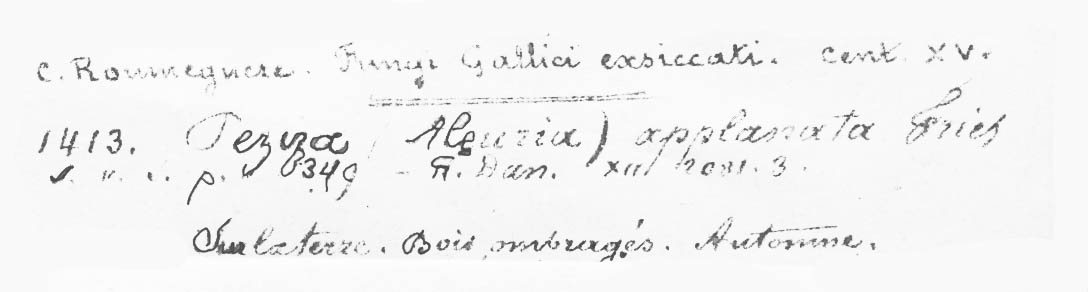 C. Roumeguere. Fungi Gallici exsiccati. Cent. XV.
1413. Peziza (Aleuria) applanata Fries
p. 349 - Fl. Dan. XII 2081. 3.
Sur la terre. Bois ombragés. Automne.